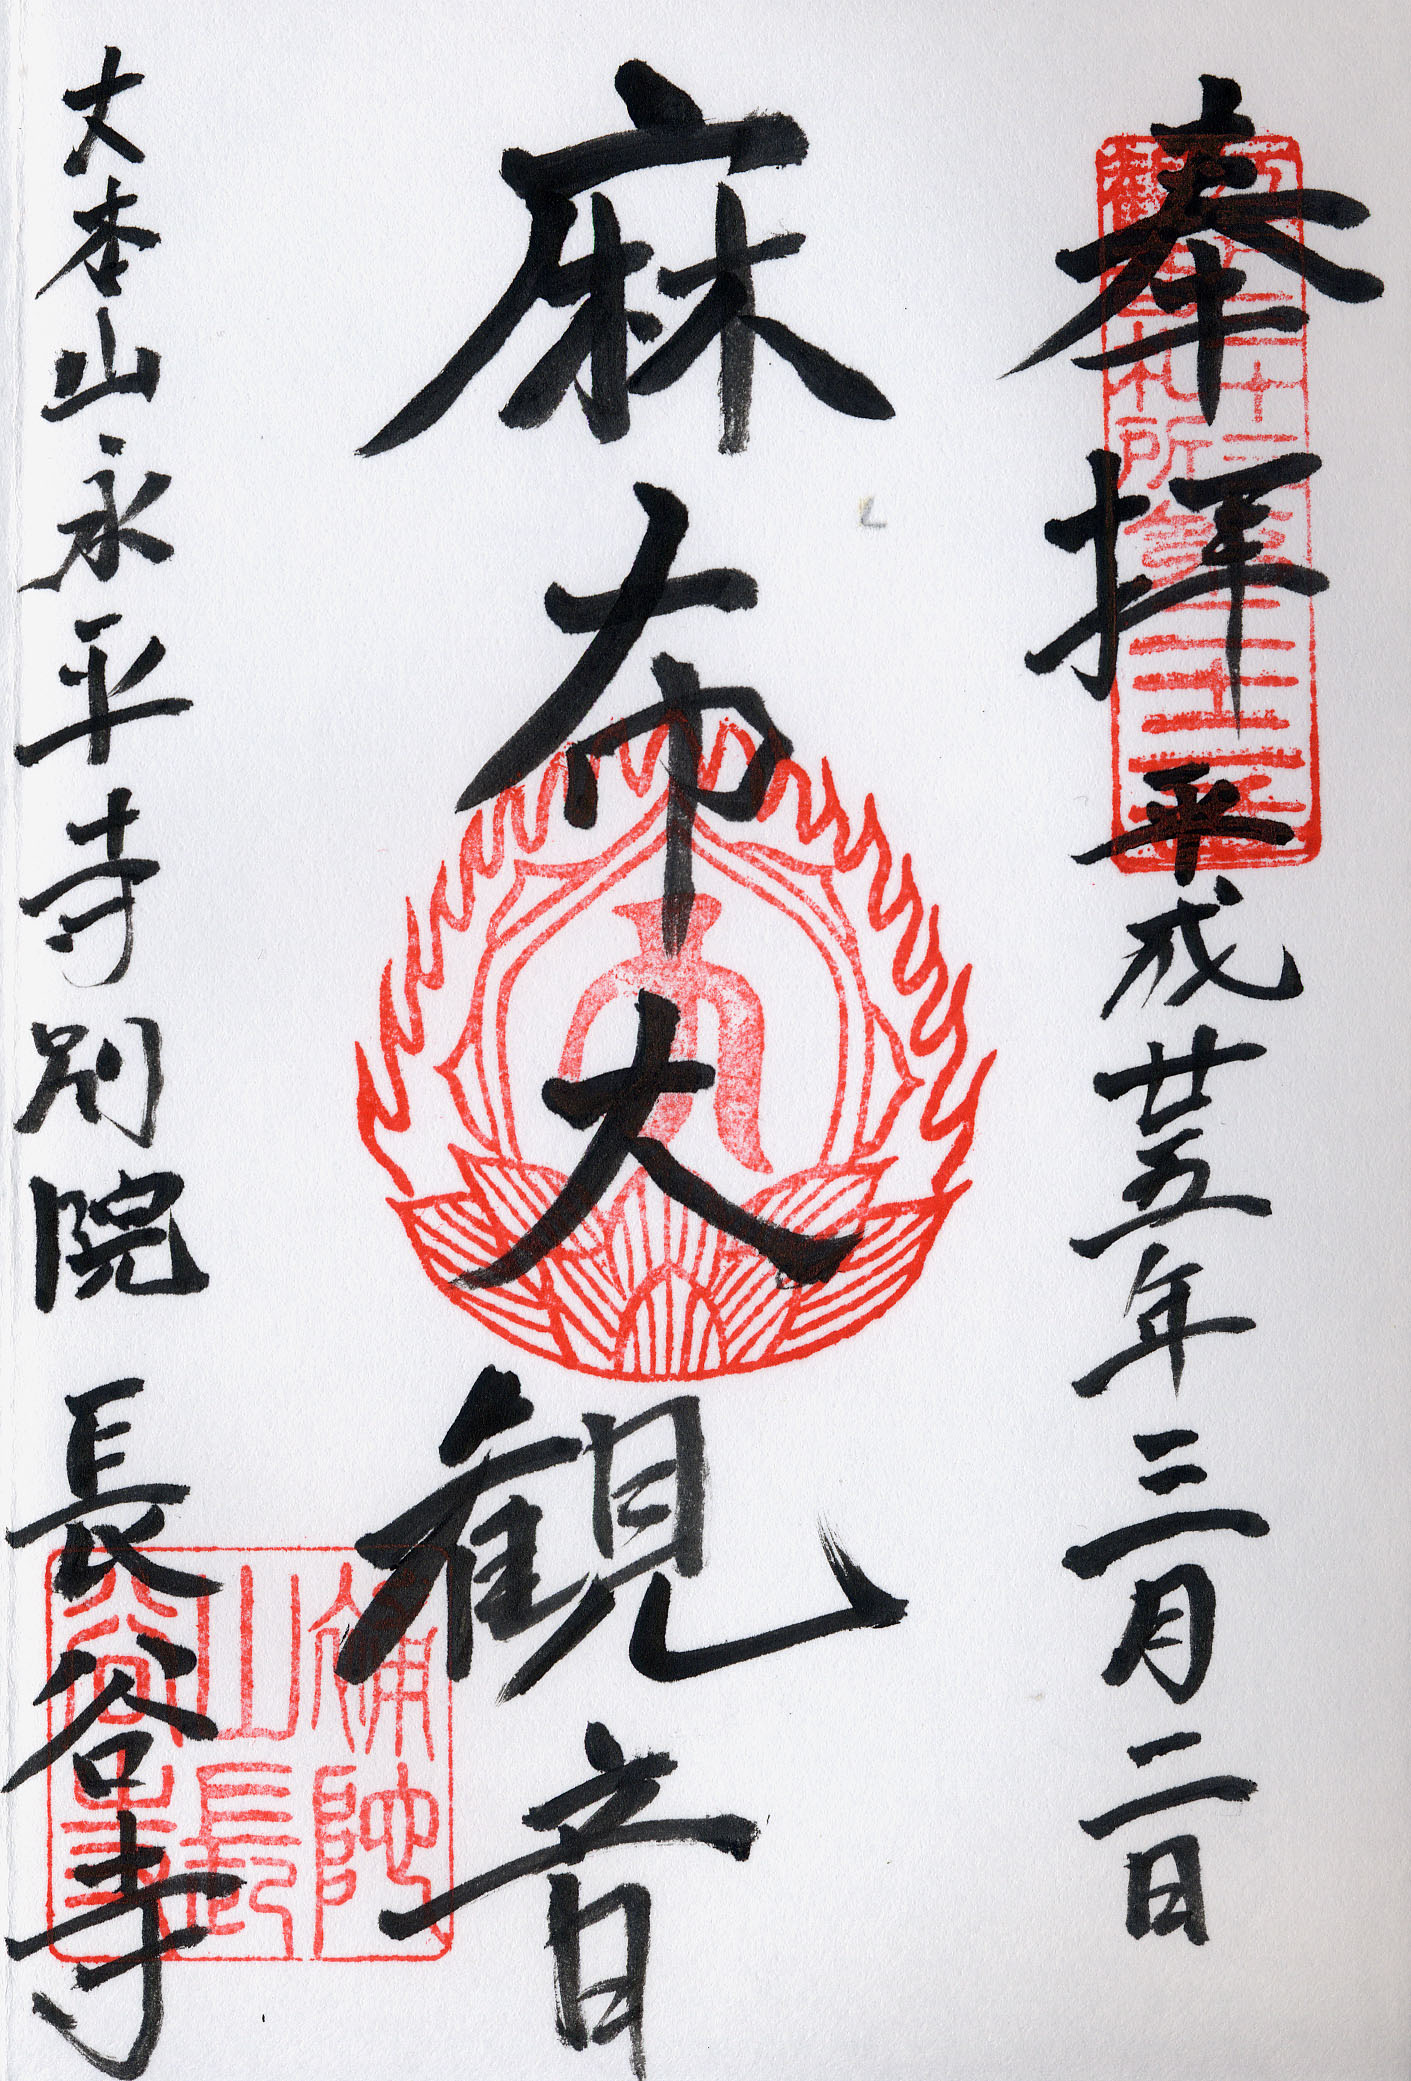 奉拝
平成廿五年三月二日
麻布大観音
大本山永平寺別院 長谷寺
補陀山長谷寺